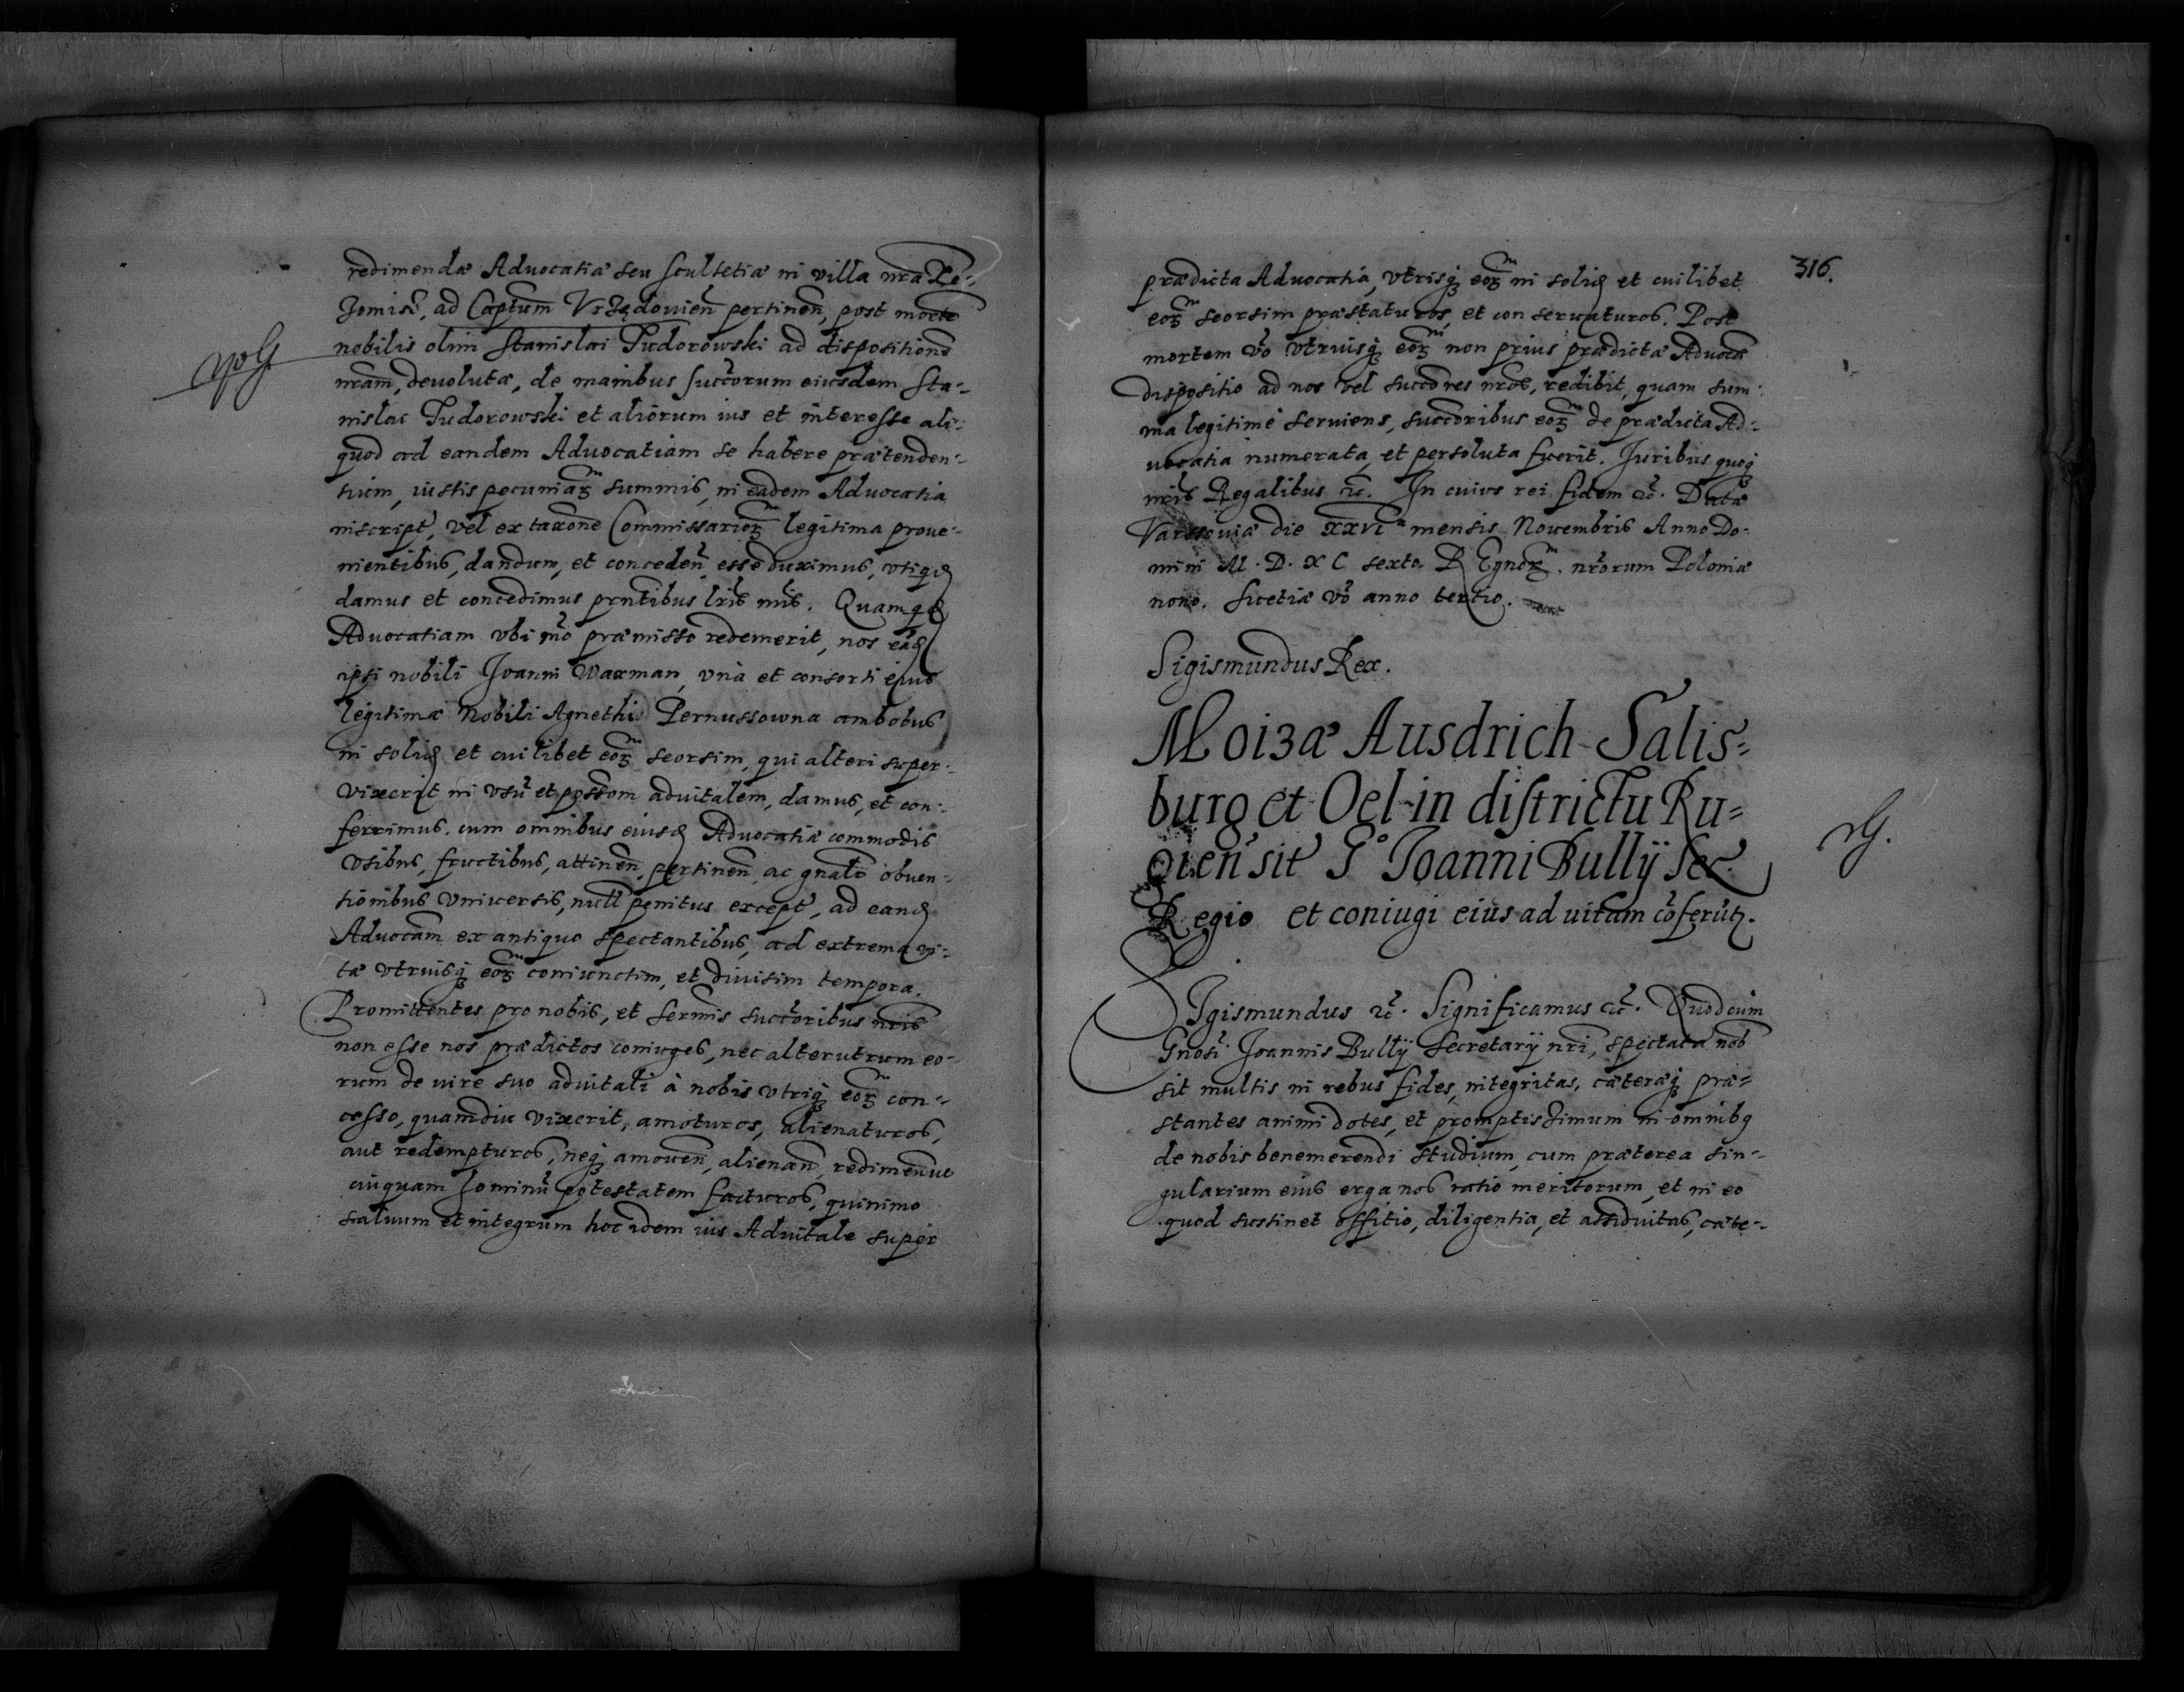 redimendæ Advocatiæ seu scultetiæ in villa nr̃a Re-
ad Capt̃um Vrzędovien̄ pertinen̄, post morte
nobilis olim Stanislai Tudorowski ad dispositionē
nr̃am, devolutæ, de manibus succ̃orum eiusdem Sta-
nislai Tudorowski et aliorum ius et interesse ali-
quod ad eandem Advocatiam se habere prætenden-
tium, iustis pecuniaꝝ summis, in eadem Advocatia
inscript̃, vel ex taxõne Commissarioꝝ legitima prove-
nientibus, dandum, et conceden̄ esse duximus, vtiqꝫ
damus et concedimus prñtibus lr̃is nr̃is. Quamqꝫ
Advocatiam vbi mõ præmisso redemerit, nos eãd
ipsi nobili Joanni Waxman, vnà et consorti eius
legitimæ Nobili Agnethæ Pernussowna ambobus
in solid et cuilibet eoꝝ seorsim, qui alteri super-
vixerit in vsũ et possõm advitalem, damus, et con-
ferrimus. cum omnibus eiusd Advocatiæ commodis
vsibus, fructibus, attinen̄, pertinen̄, ac gñali obven-
tionibus vniversis, null penitus except̃, ad eand
Advocãm ex antiquo spectantibus, ad extrema vi-
tæ vtriusqꝫ eoꝝ coniunctim, et divisim tempora.
Promittentes pro nobis, et sermis succ̃oribus nr̃is
non esse nos prædictos coniuges, nec alterutrum eo-
rum de iure suo advitali à nobis vtriqꝫ eoꝝ con-
cesso, quamdiu vixerit, amoturos, alienaturos,
aut redempturos, neqꝫ amoven̄, alienan̄, redimen̄ve
cuiquam hominũ potestatem facturos, quinimo
salvum et integrum hoc idem ius Advitale super
316.
prædicta Advocatia, vtrisqꝫ eoꝝ in solid et cuilibet
eoꝝ seorsim præstaturos, et conservaturos. Post
mortem võ vtriusqꝫ eoꝝ non prius prædictæ Advocãe
dispositio ad nos vel succ̃ores nr̃os, redibit, quam sum-
ma legitimè serviens, succ̃oribus eoꝝ de prædicta Ad-
vocatia numerata, et persoluta fuerit. Juribus quoqꝫ
nr̃is Regalibus ꝛc̃. In cuius rei fidem ꝛc̃. Datæ
Varssoviæ die xxvi mensis Novembris Anno Do-
mini M. D. X C sexto. REgnoꝝ. nr̃orum Poloniæ
nono. Sueciæ võ anno tertio.
Sigismundus Rex.
Moizæ Ausdrich Salis-
burg et Oel in districtu Ru-
sit G° Joanni Bullÿ Sec.
Regio et coniugi eius ad vitam cõferũtꝛ.
SIgismundus ꝛc̃. Significamus ꝛc̃. Quod cum
Gnosi Joannis Bullÿ Secretarÿ nr̃i, spectata nob
sit multis in rebus fides, integritas, cæteræqꝫ præ-
stantes animi dotes, et promptissimum in omnibꝯ
de nobis benemerendi studium, cum præterea sin-
gularium eius erga nos ratio meritorum, et in eo
quod sustinet offitio, diligentia, et assiduitas, cæte-